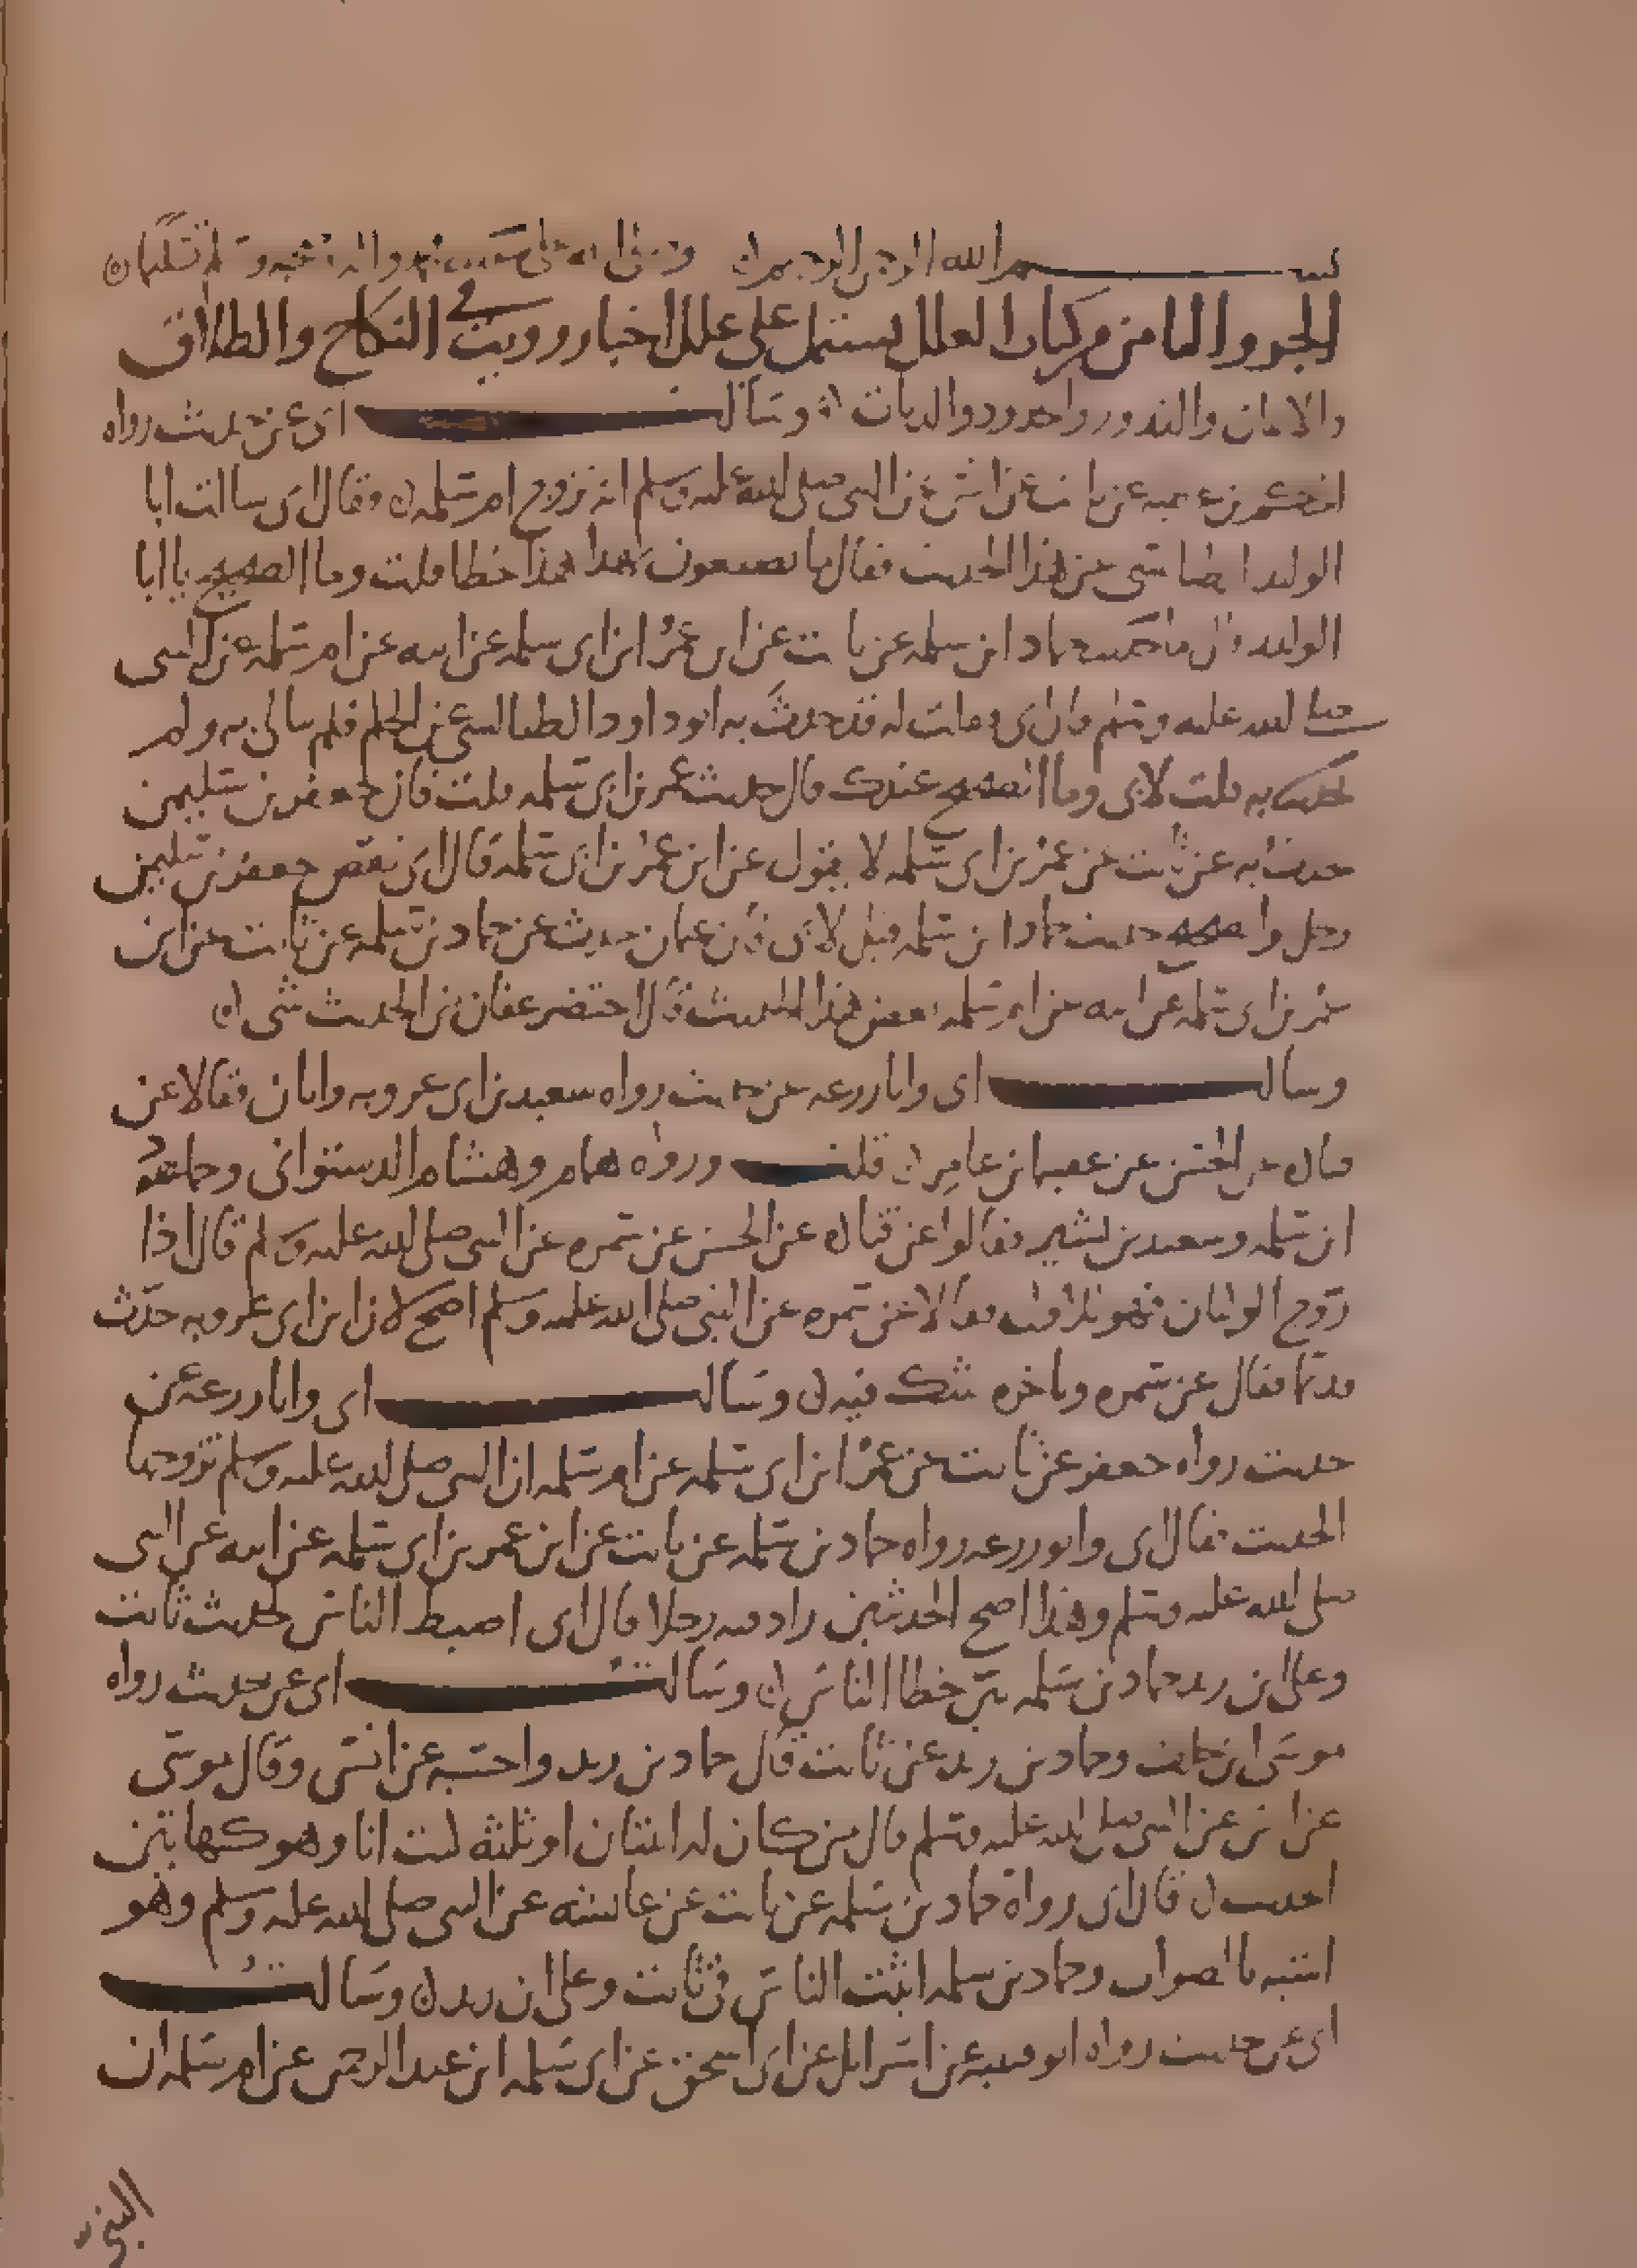 بسم الله الرحمن الرحيم وصلى الله على محمد واله وصحبه وسلم تسليما
الجزو الثامن من كتاب العلل يشتمل على علل اخبار رويت في النكاح والطلاق
والايمان والنذور والحدود والديات وسالت ابي عن حديث رواه
الحكم بن عطيه عن ثابت عن انس عن النبي صلى الله عليه وسلم انه تزوج ام سلمه وقال ابي سالت ابا
الوليد الطيالسي عن هذا الحديث فقال ما تصنعون بهذا هذا خطا قلت وما الصحيح يا ابا
الوليد قال ما حماد ابن سلمه عن ثابت عن ابن عمر ابن ابي سلمه عن ابيه عن ام سلمه عن النبي
صلى الله عليه وسلم قال ابي وقلت له قد حدث به ابو داود الطيالسي عن الحكم فلم يبالي به ولم
به قلت لابي وما الصحيح عندك قال حديث عمر بن ابي سلمه قلت فان جعفر بن سليمن
حدث به عن ثابت عن عمر بن ابي سلمه لا يقول عن ابن عمر بن ابي سلمه قال ابي نقص جعفر بن سليمن
رجل والصحيح حديث حماد ابن سلمه قيل لابي فان عفان حديث عن حماد بن سلمه عن ثابت عن ابن
عمر بن ابي سلمه عن ابيه عن ام سلمه بعض هذا الحديث قال اختصر عفان من الحديث شي
وسالت ابي وابا زرعه عن حديث رواه سعيد بن ابي عروبه وابان فقالا عن
قتاده عن الحسن عن عقبه بن عامر قلت ورواه همام وهشام الدستوائي وحماد
ابن سلمه وسعيد بن بشير فقالوا عن قتاده عن الحسن عن سمره عن النبي صلى الله عليه وسلم قال اذا
زوج الوليان فهو للاول فقالا عن سمره عن النبي صلى الله عليه وسلم اصح لان ابن ابي عروبه حدث
قديما فقال عن سمره وباخره شك فيه وسالت ابي وابا زرعه عن
حديث رواه جعفر عن ثابت عن عمر ابن ابي سلمه عن ام سلمه ان النبي صلى الله عليه وسلم تزوجها
الحديث فقال ابي وابو زرعه رواه حماد بن سلمه عن ثابت عن ابن عمر بن ابي سلمه عن ابيه عن النبي
صلى الله عليه وسلم وهذا اصح الحديثين زاد فيه رجلا قال ابي اضبط الناس لحديث ثابت
وعلى ابن زيد حماد بن سلمه بين خطا الناس وسالت ابي عن حديث رواه
موسى ابن خلف وحماد بن زيد عن ثابت قال حماد بن زيد واحسبه عن انس وقال موسى
عن انس عن النبي صلى الله عليه وسلم قال من كان له ابنتان او ثلثه كنت انا وهو كهاتين
الحديث قال ابي رواه حماد بن سلمه عن ثابت عن عائشه عن النبي صلى الله عليه وسلم وهو
اشبه بالصواب وحماد بن سلمه اثبت الناس في ثابت وعلى ابن زيد وسالت
ابي عن حديث رواه ابو قتيبه عن اسرائل عن ابي اسحق عن ابي سلمه ابن عبد الرحمن عن ام سلمه ان
النبي